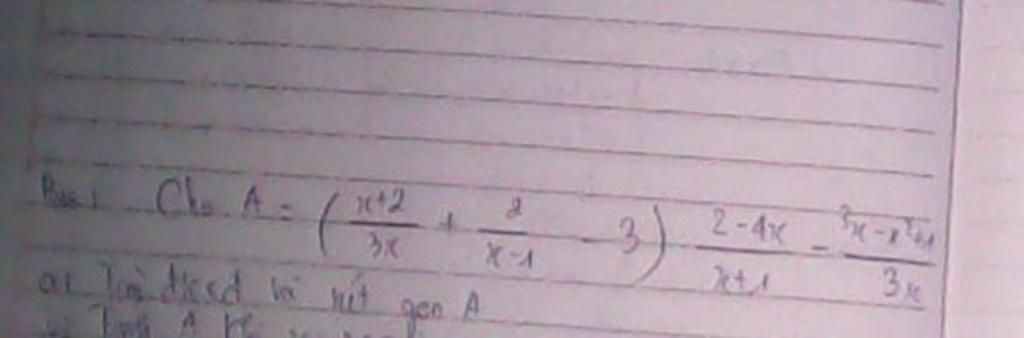 Bài 1 Cho A = ( (x+2)/(3x) + 2/(x-1) - 3 ) (2-4x)/(x+1) - (3x-x²+1)/(3x)
a, Tìm đkxđ và rút gọn A
b, Tính A